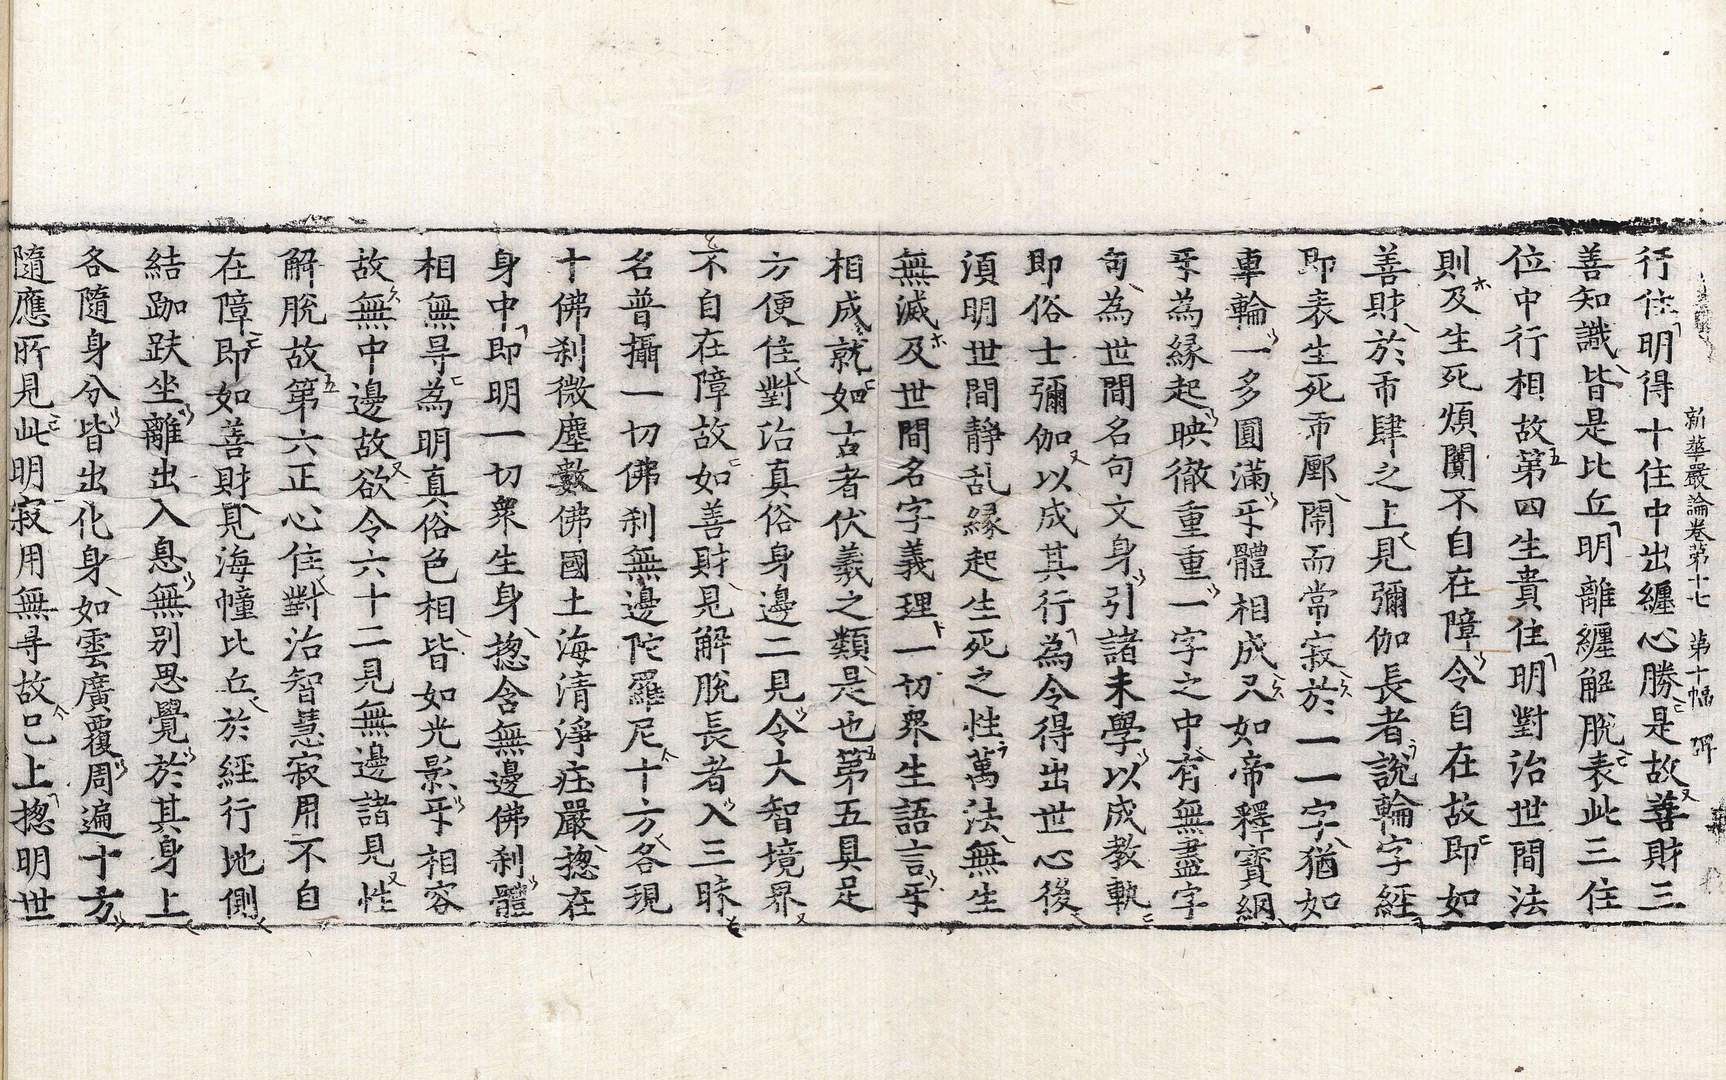 新華嚴論卷第十七　第十幅
行住明得十住中出纏心勝是故善財三
善知識皆是比丘明離纏解脫表此三住
位中行相故第四生貴住明對治世間法
則及生死煩闠不自在障令自在故即如
善財於市肆之上見彌伽長者說輪字經
即表生死市廛鬧而常寂於一一字猶如
車輪一多圓滿㸦體相成又如帝釋寶網
㸦為緣起映徹重重一字之中有無盡字
句為世間名句文身引諸未學以成教軌
即俗士彌伽以成其行為令得出世心後
須明世間靜乱緣起生死之性萬法無生
無滅及世間名字義理一切衆生語言㸦
相成就如古者伏羲之類是也第五具足
方便住對治真俗身邊二見令大智境界
不自在障故如善財見解脫長者入三昧
名普攝一切佛剎無邊陀羅尼十方各現
十佛剎微塵數佛國土海清淨莊嚴揔在
身中即明一切衆生身揔含無邊佛剎體
相無㝵為明真俗色相皆如光影㸦相容
故無中邊故欲令六十二見無邊諸見性
解脫故第六正心住對治智慧寂用不自
在障即如善財見海幢比丘於經行地側
結跏趺坐離出入息無別思覺於其身上
各隨身分皆出化身如雲廣覆周遍十方
隨應所見此明寂用無㝵故已上揔明世